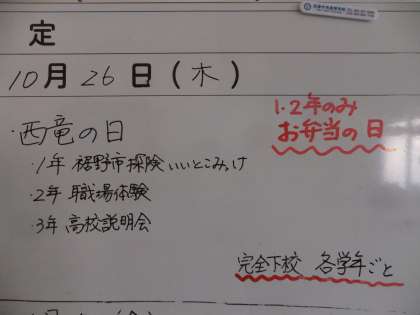 定
10月26日(木)
・西竜の日
1・2年のみ
お弁当の日
・1年 裾野市探険 いいとこみっけ
・2年 職場体験
・3年 高校説明会
完全下校 各学年ごと